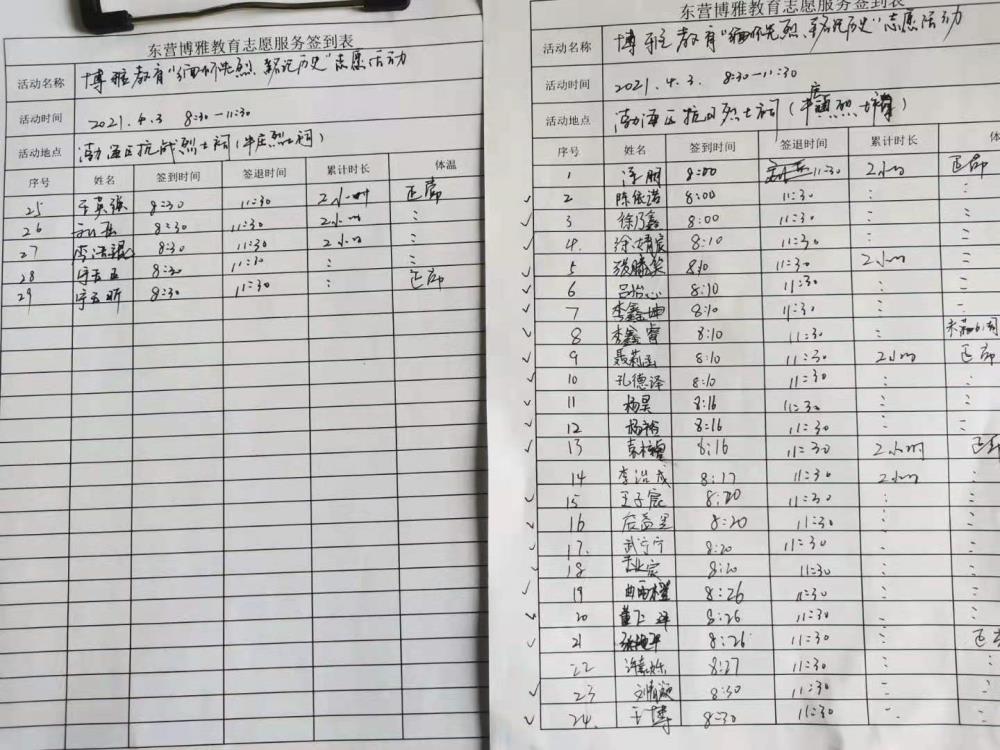 东营博雅教育志愿服务签到表
活动名称 博雅教育"缅怀先烈、铭记历史"志愿活动
活动时间 2021.4.3 8:30-11:30
活动地点 渤海区抗战烈士祠(牛庄烈士祠)
序号 姓名 签到时间 签退时间 累计时长 体温
25 王英强 8:30 11:30 2小时 正常
26 8:30 11:30 2小时 :
27 8:30 11:30 2小时 :
28 8:30 11:30 : :
29 8:30 11:30 : 正常
东营博雅教育志愿服务签到表
活动名称 博雅教育"缅怀先烈、铭记历史"志愿活动
活动时间 2021.4.3. 8:30-11:30
活动地点 渤海区抗日烈士祠(牛庄烈士祠)
序号 姓名 签到时间 签退时间 累计时长 体
1 8:00 11:30 2小时 正常
2 陈依诺 8:00 11:30 : :
3 徐乃鑫 8:00 11:30 : :
4. 徐婧宸 8:10 11:30 : :
5 张滕笑 8:10 11:30 2小时 :
6 吕怡心 8:10 11:30 : :
7 李鑫坤 8:10 11:30 : :
8 李鑫睿 8:10 11:30 :
9 聂莉函 8:10 11:30 2小时 正常
10 孔德泽 8:10 11:30 : :
11 杨昊 8:16 11:30 : :
12 杨裕 8:16 11:30 : :
13 8:16 11:30 2小时 正常
14 李浩成 8:17 11:30 2小时
15 王子宸 8:20 11:30 :
16 8:20 11:30 :
17. 武宁宁 8:20 11:30
18 8:20 11:30 :
19 曲雨橙 8:26 11:30 :
20 8:26 11:30 :
21 8:26 11:30 : 正常
22 8:27 11:30 :
23 8:30 11:30 :
24. 于博 8:30 11:30